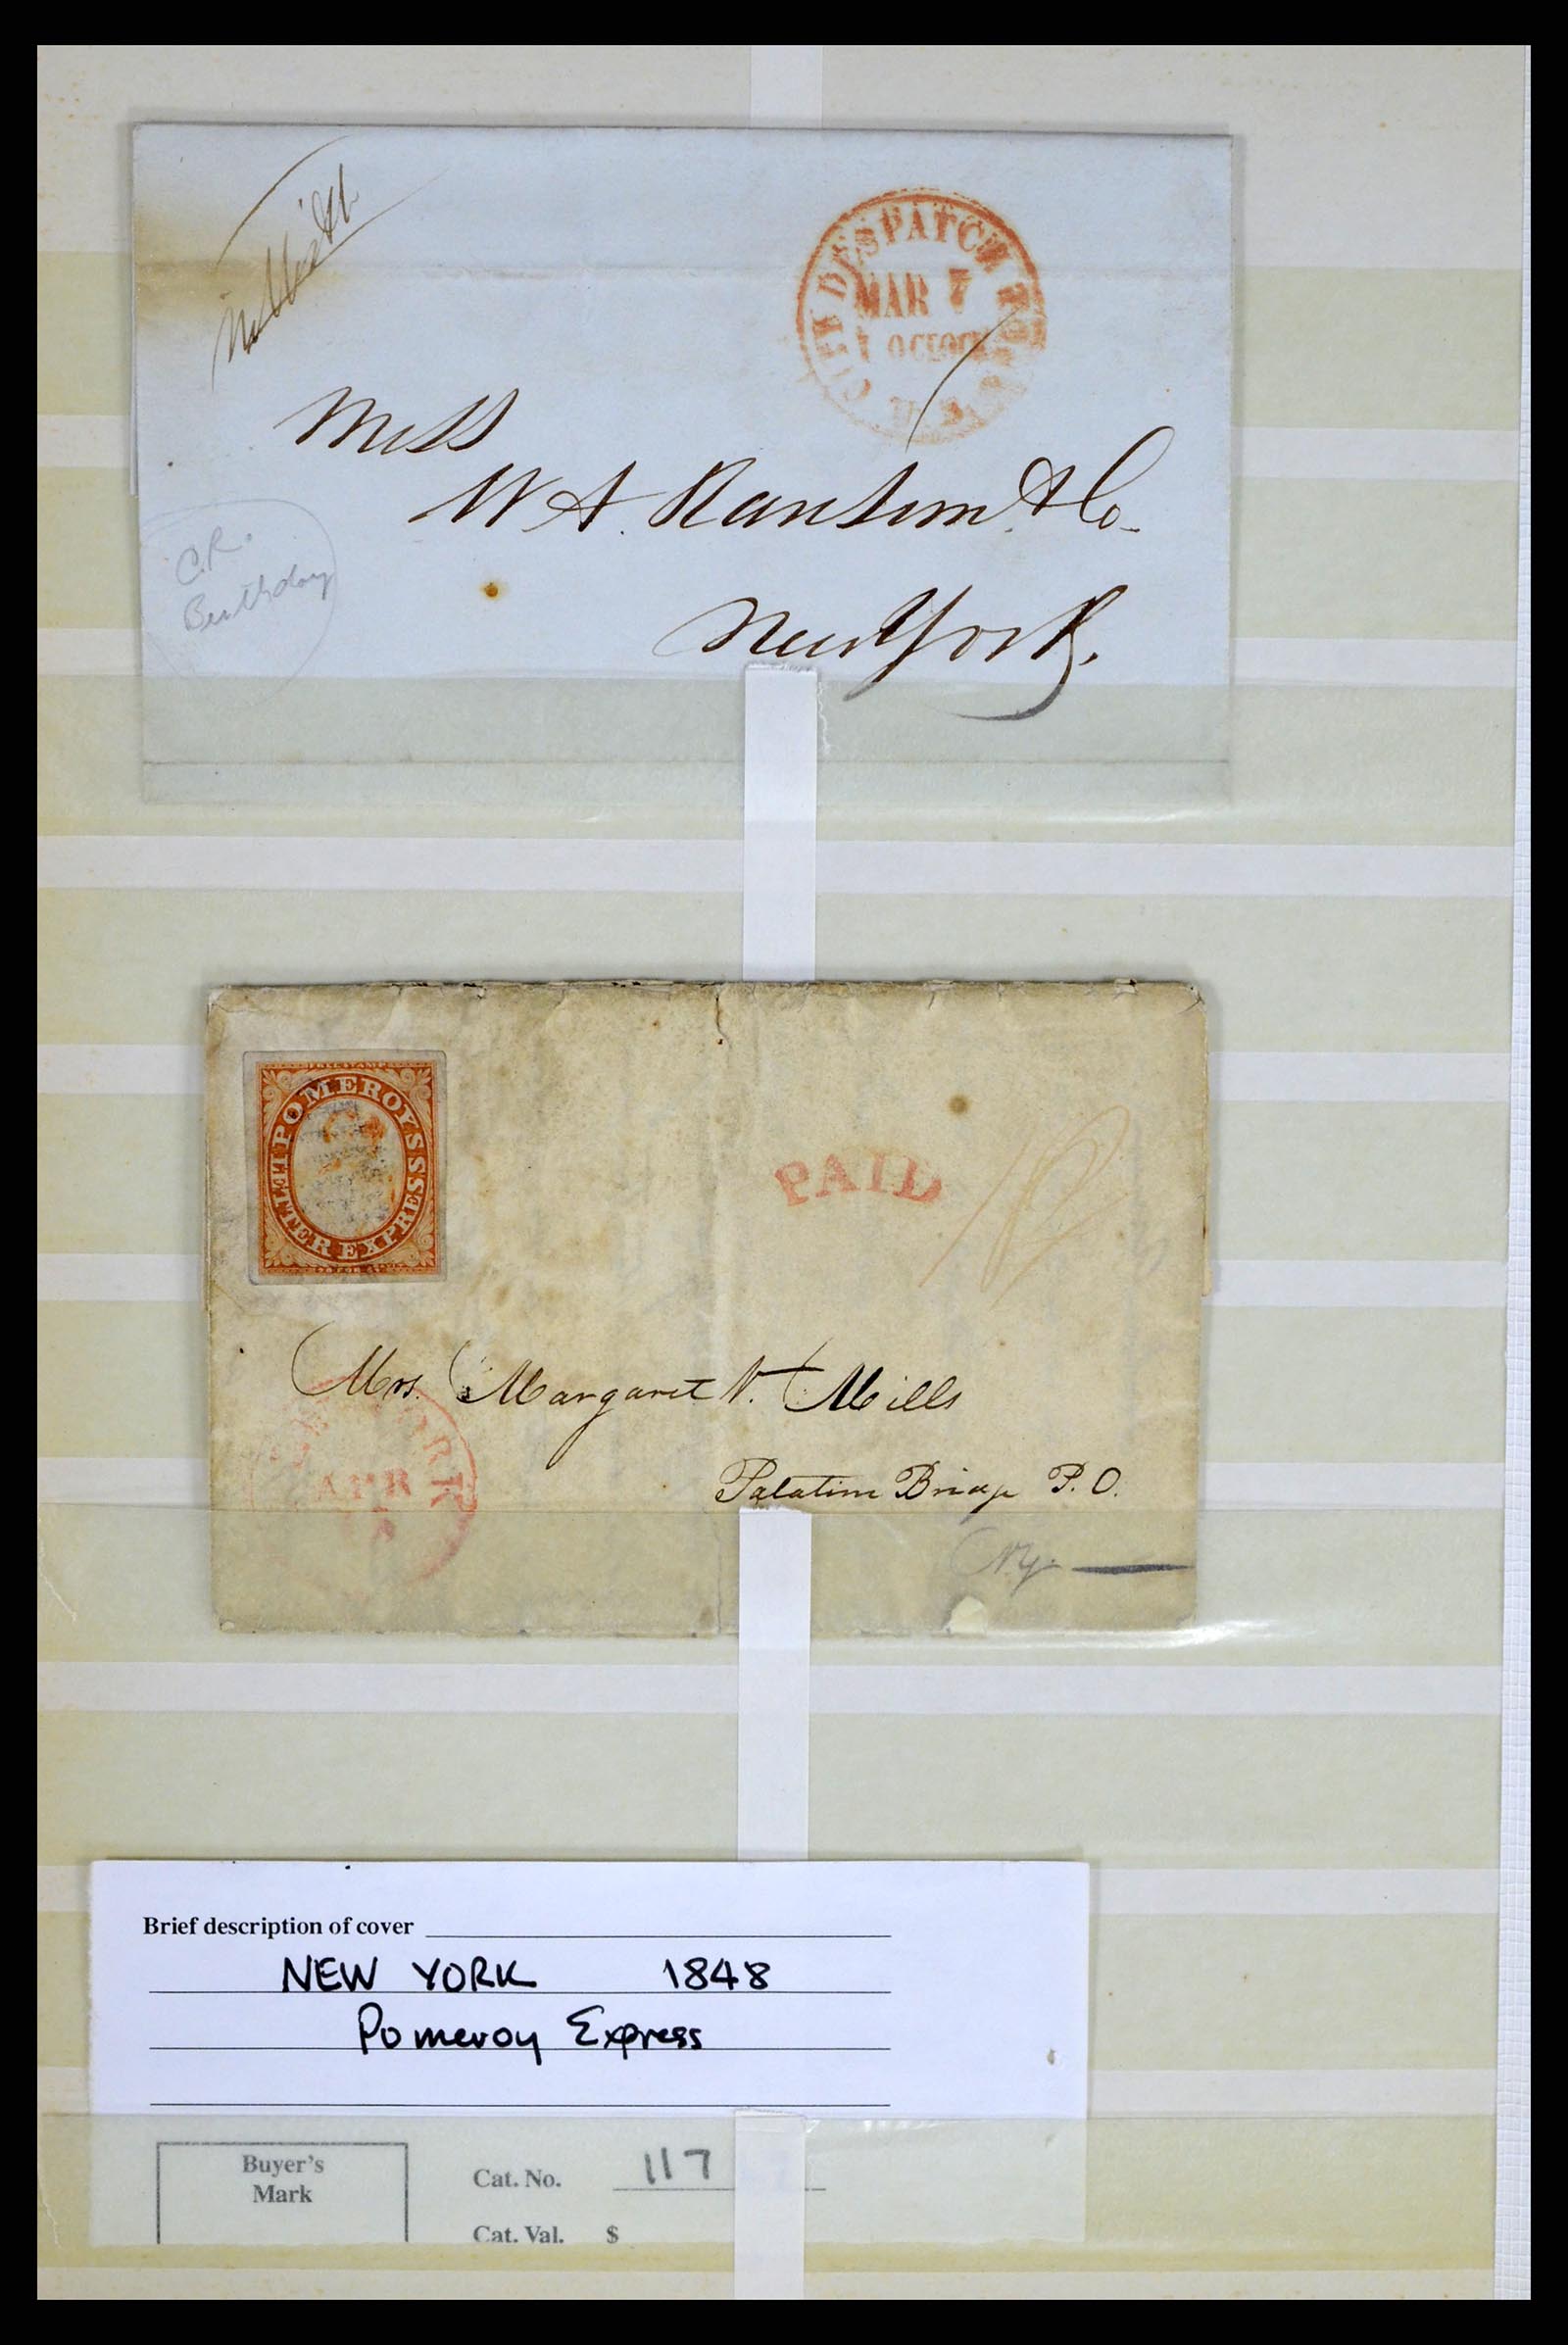 CITY DESPATCH POST
MAR 7
O'CLOCK
U.S
Mess
W A. Ransom & Co-
New York.
C.R.
Birthday
POMEROYS
LETTER EXPRESS
PAID
10
Mrs. Margaret V. Mills
Palatine Bridge P. O.
N.Y.
YORK
APR
Brief description of cover
NEW YORK 1848
Pomeroy Express
Buyer's
Mark
Cat. No. 117
Cat. Val. $